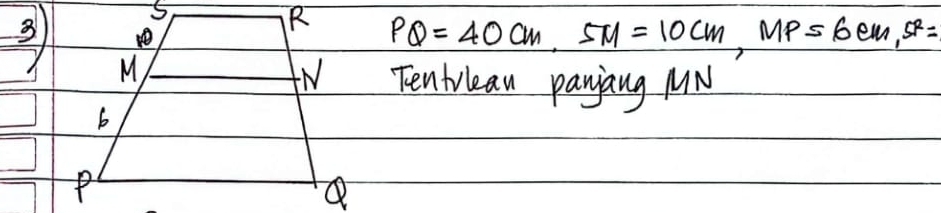 3)
S R
10
M N
6
P Q
PQ = 40 cm, SM = 10 cm, MP = 6 cm, SR =
Tentukan panjang MN